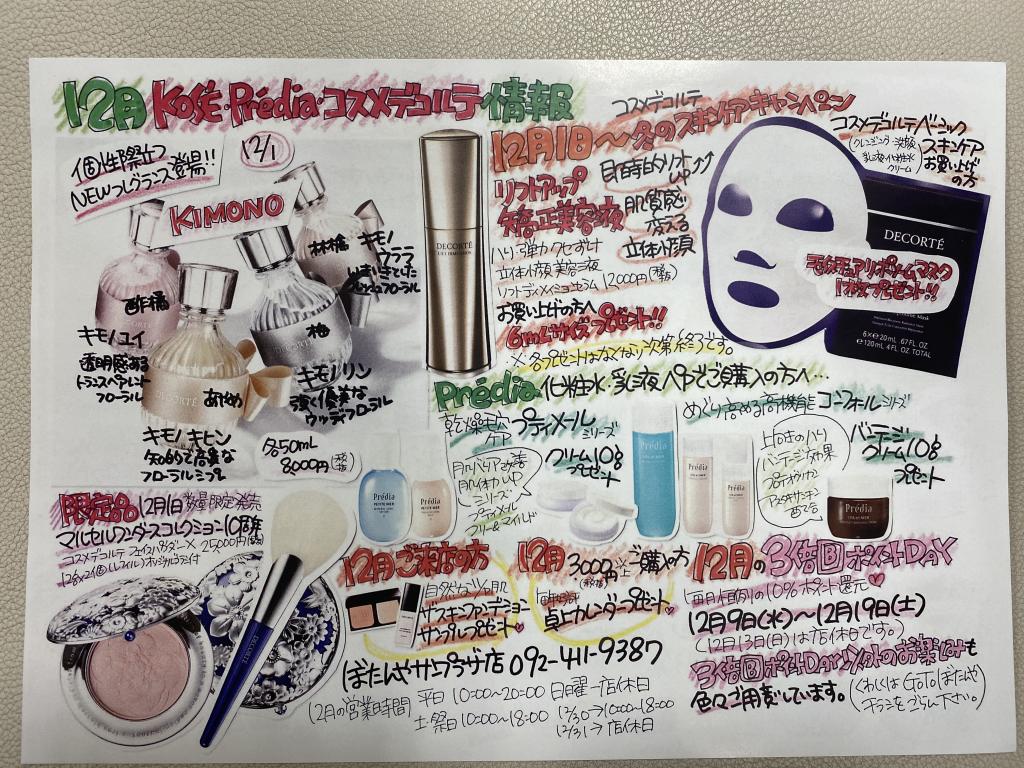 12月 KOSÉ・Prédia・コスメデコルテ 情報
個性際立つ
NEWフレグランス登場!!
12/1
KIMONO
キモノ
ウララ
キモノ ユイ
透明感ある
トランスペアレント
フローラル
DECORTÉ
キモノ リン
強く優美な
ウッディフローラル
キモノ キヒン
フローラルシプレ
各50mL
8000円(税抜)
DECORTÉ
LIFT DIMENSION
コスメデコルテ
12月1日～冬のスキンケアキャンペーン
リフトアップ
矯正美容液
目時的リフト
UP
肌質感
冴える
立体小顔
ハリ・弾力 クセづけ
立体小顔美容液
リフトディメンションセラム 12000円(税抜)
お買い上げの方へ
6mLサイズプレゼント!!
※各プレゼントはなくなり次第終了です。
コスメデコルテベーシック
スキンケア
お買い上げ
の方
(クレンジング・洗顔
乳液・化粧水
クリーム)
DECORTÉ
1枚プレゼント!!
6×20mL .67 FL OZ
120mL 4 FL OZ TOTAL
Prédia 化粧水・乳液ペアでご購入の方へ…
乾燥毛穴
ケア
プティメール
シリーズ
クリーム10g
プレゼント
Prédia
PETITE MER
Prédia
PETITE MER
めぐり高める高機能 コンフォールシリーズ
Prédia
Prédia
Prédia
上向きのハリ
バンテージ効果
プロテオグリカン
アスタキサンチン
配合
バンテージ
クリーム10g
プレゼント
Prédia
限定品 12月1日数量限定発売
マルセル ワンダースコレクション
コスメデコルテ フェイスパウダー
25000円
DECORTÉ
12月ご来店の方
ザスキンファンデーション
サンプルプレゼント♥
12月 3000円以上ご購入の方
(税抜)
卓上カレンダープレゼント♥
12月の3倍⑤ポイントDAY
毎月恒例の10%ポイント還元♥
12月9日(水)～12月19日(土)
(12月13日(日)は店休日です。)
3倍⑤ポイントDAY以外のお楽しみも
色々ご用意しています。
(くわしくは GoToぼたんや
チラシをごらん下さい。)
ぼたんやサンプラザ店 092-411-9387
12月の営業時間 平日 10:00~20:00 日曜→店休日
土・祭日 10:00~18:00 12/30→10:00~18:00
12/31→店休日